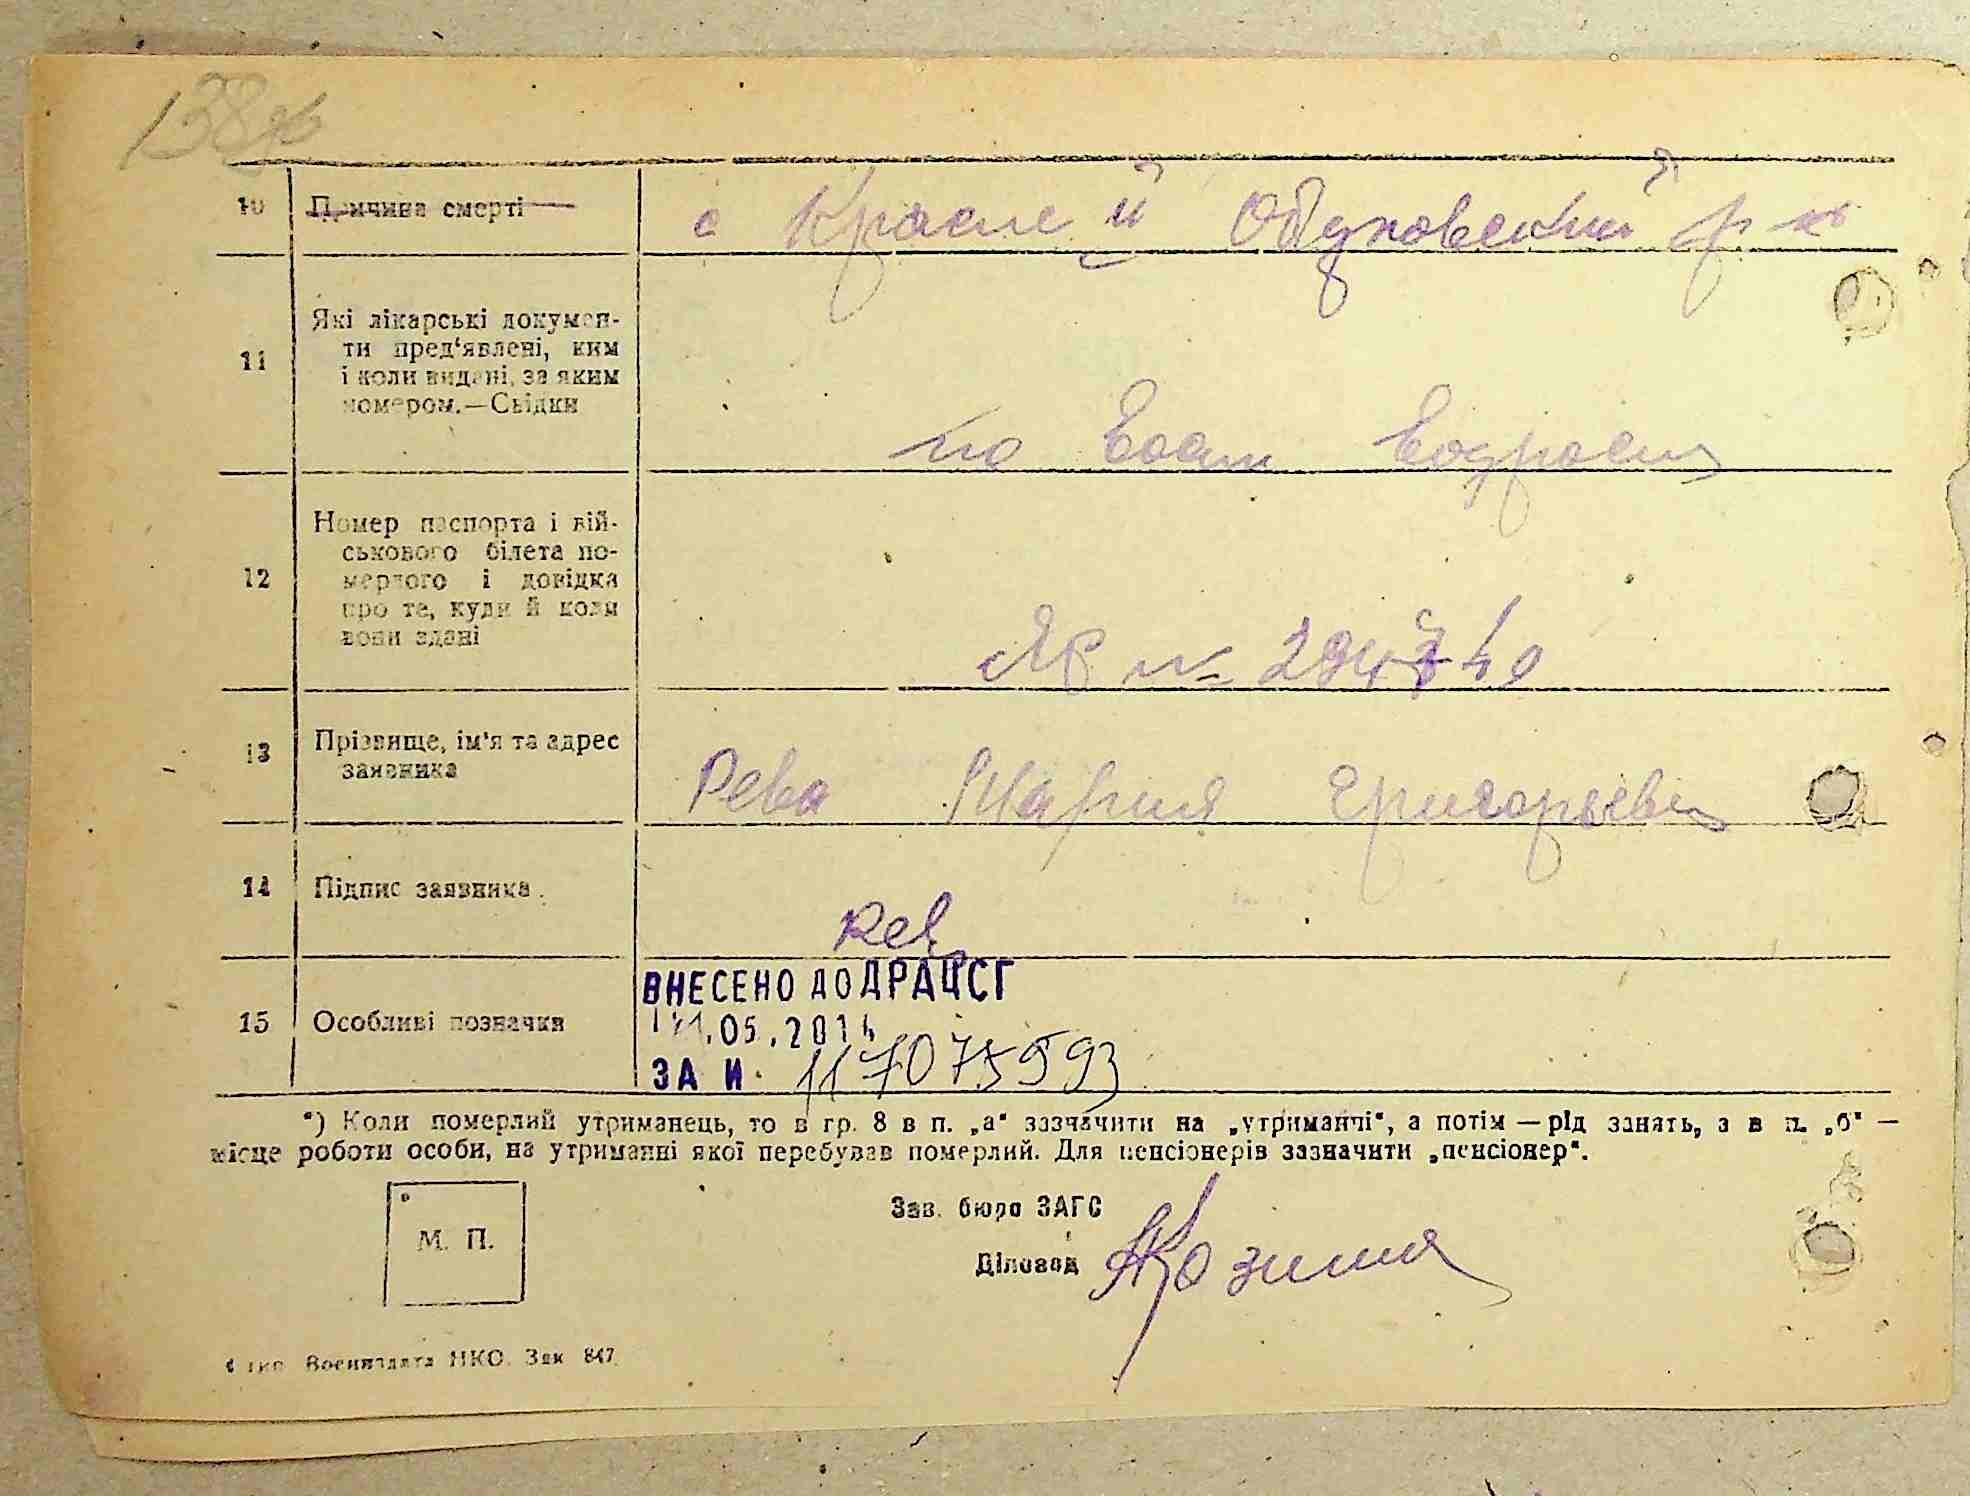 138
10 Причина смерті
с Красне й Обуховский р-н
11 Які лікарські докумен-
ти пред‘явлені, ким
і коли видані, за яким
номером.—Свідки
по Восп
12 Номер паспорта і вій-
ськового білета по-
мерлого і довідка
про те, куди й коли
вони здані
13 Прізвище, ім'я та адрес
заявника
Рева Мария Григорьевна
14 Підпис заявника
Рев
15 Особливі позначки
ВНЕСЕНО ДО ДРАЦСГ
.05.2014
ЗА И. 1170759593
*) Коли померлий утриманець, то в гр. 8 в п. „а“ зазначити на „утриманчі“, а потім — рід занять, а в п. „б“ —
місце роботи особи, на утриманні якої перебував померлий. Для пенсіонерів зазначити „пенсіонер“.
М. П.
Зав. бюро ЗАГС
Діловод
Воениздата НКО. Зак 847